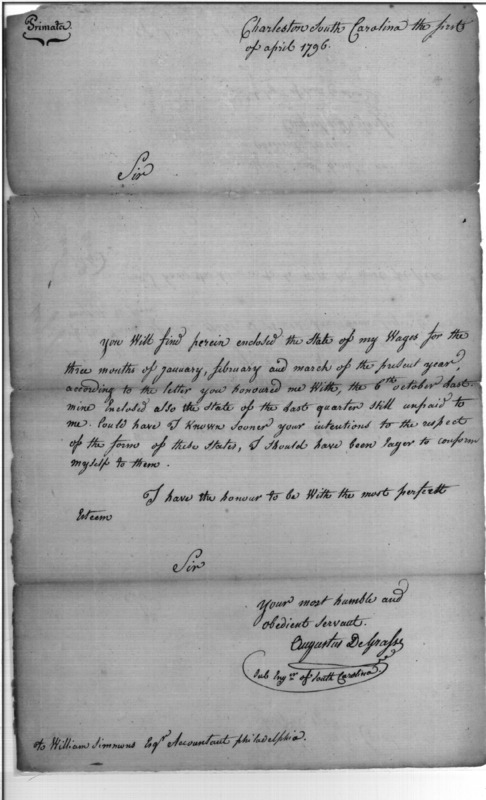 Primata
Charleston South Carolina the first
of april 1796.
Sir
you Will find herein enclosed the State of my Wages for the
three months of january, february and march of the present year,
according to the letter you honoured me With, the 6th october last.
mine Enclosed also the State of the last quarter still unpaid to
me. Could have I Known sooner your intentions to the respect
of the form of these States, I should have been Eager to conform
myself to them.
I have the honour to be With the most perfect
Esteem
Sir
your most humble and
obedient servant.
Augustus DeGrasse
Sub Engr. of South Carolina
to William Simmons Esqr. Accountant philadelphia.